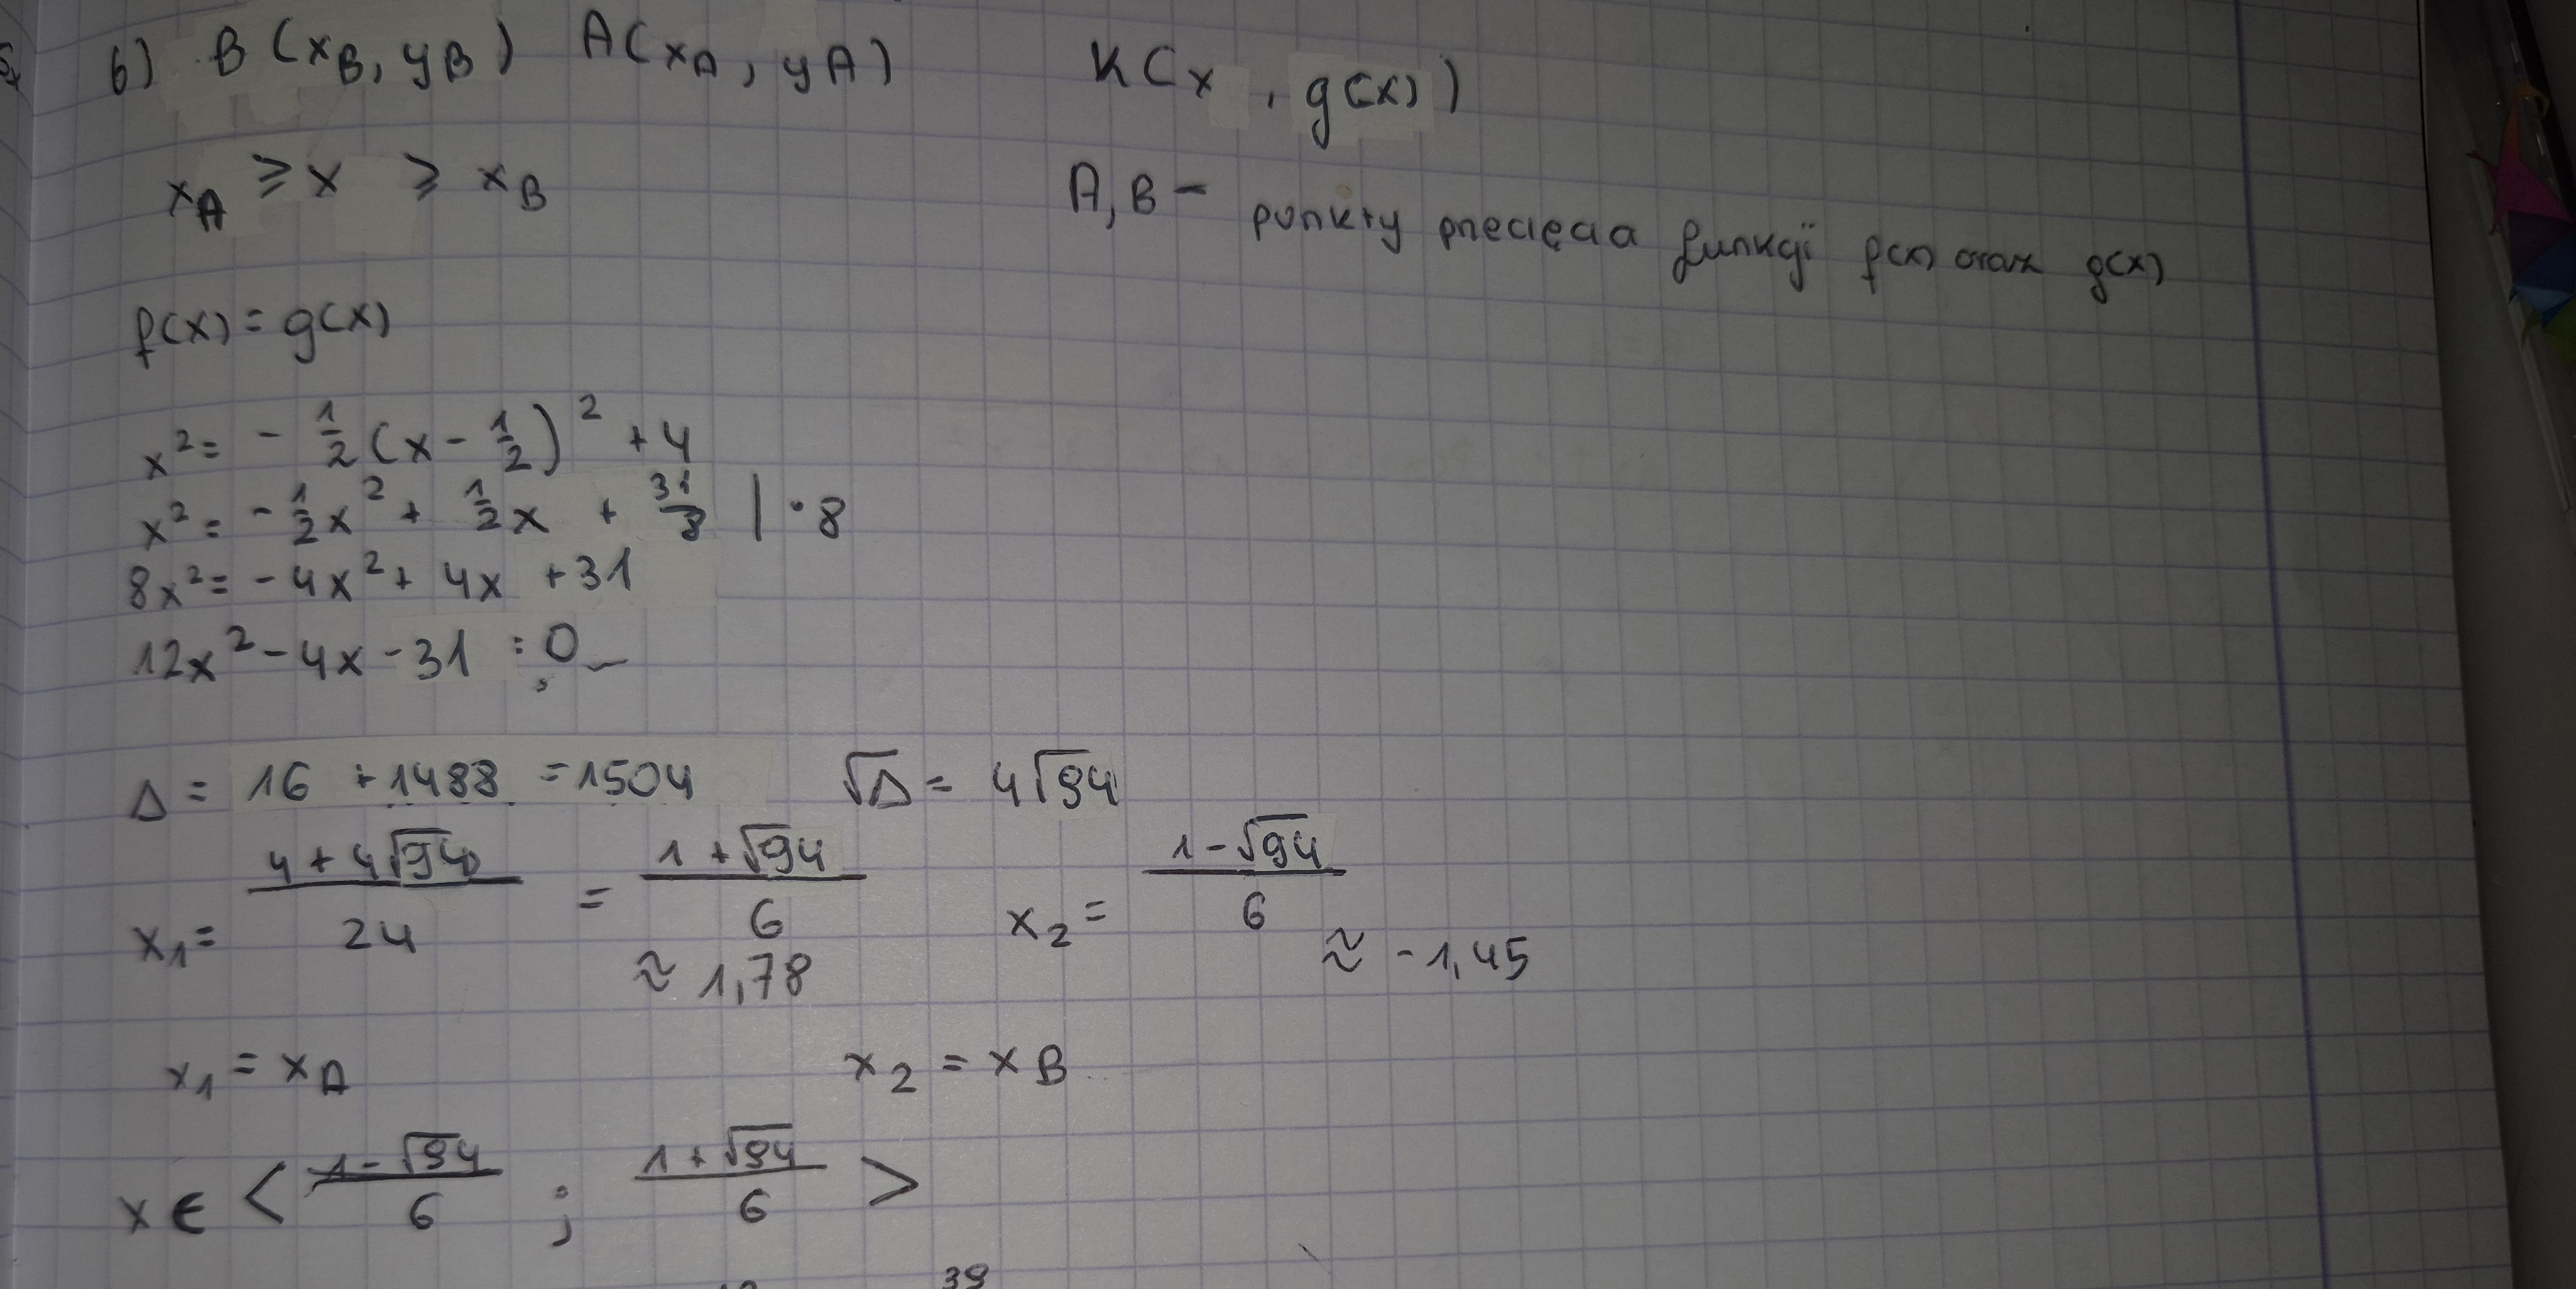 b) B(x_B, y_B) A(x_A, y_A) K(x, g(x))
x_A ≥ x ≥ x_B
A, B - punkty przecięcia funkcji f(x) oraz g(x)
f(x) = g(x)
x² = -1/2(x - 1/2)² + 4
x² = -1/2x² + 1/2x + 31/8 | · 8
8x² = -4x² + 4x + 31
12x² - 4x - 31 = 0
Δ = 16 + 1488 = 1504 √Δ = 4√94
x₁ = (4 + 4√94)/24 = (1 + √94)/6 x₂ = (1 - √94)/6
≈ 1,78 ≈ -1,45
x₁ = x_A x₂ = x_B
x ∈ < (1 - √94)/6 ; (1 + √94)/6 >
39